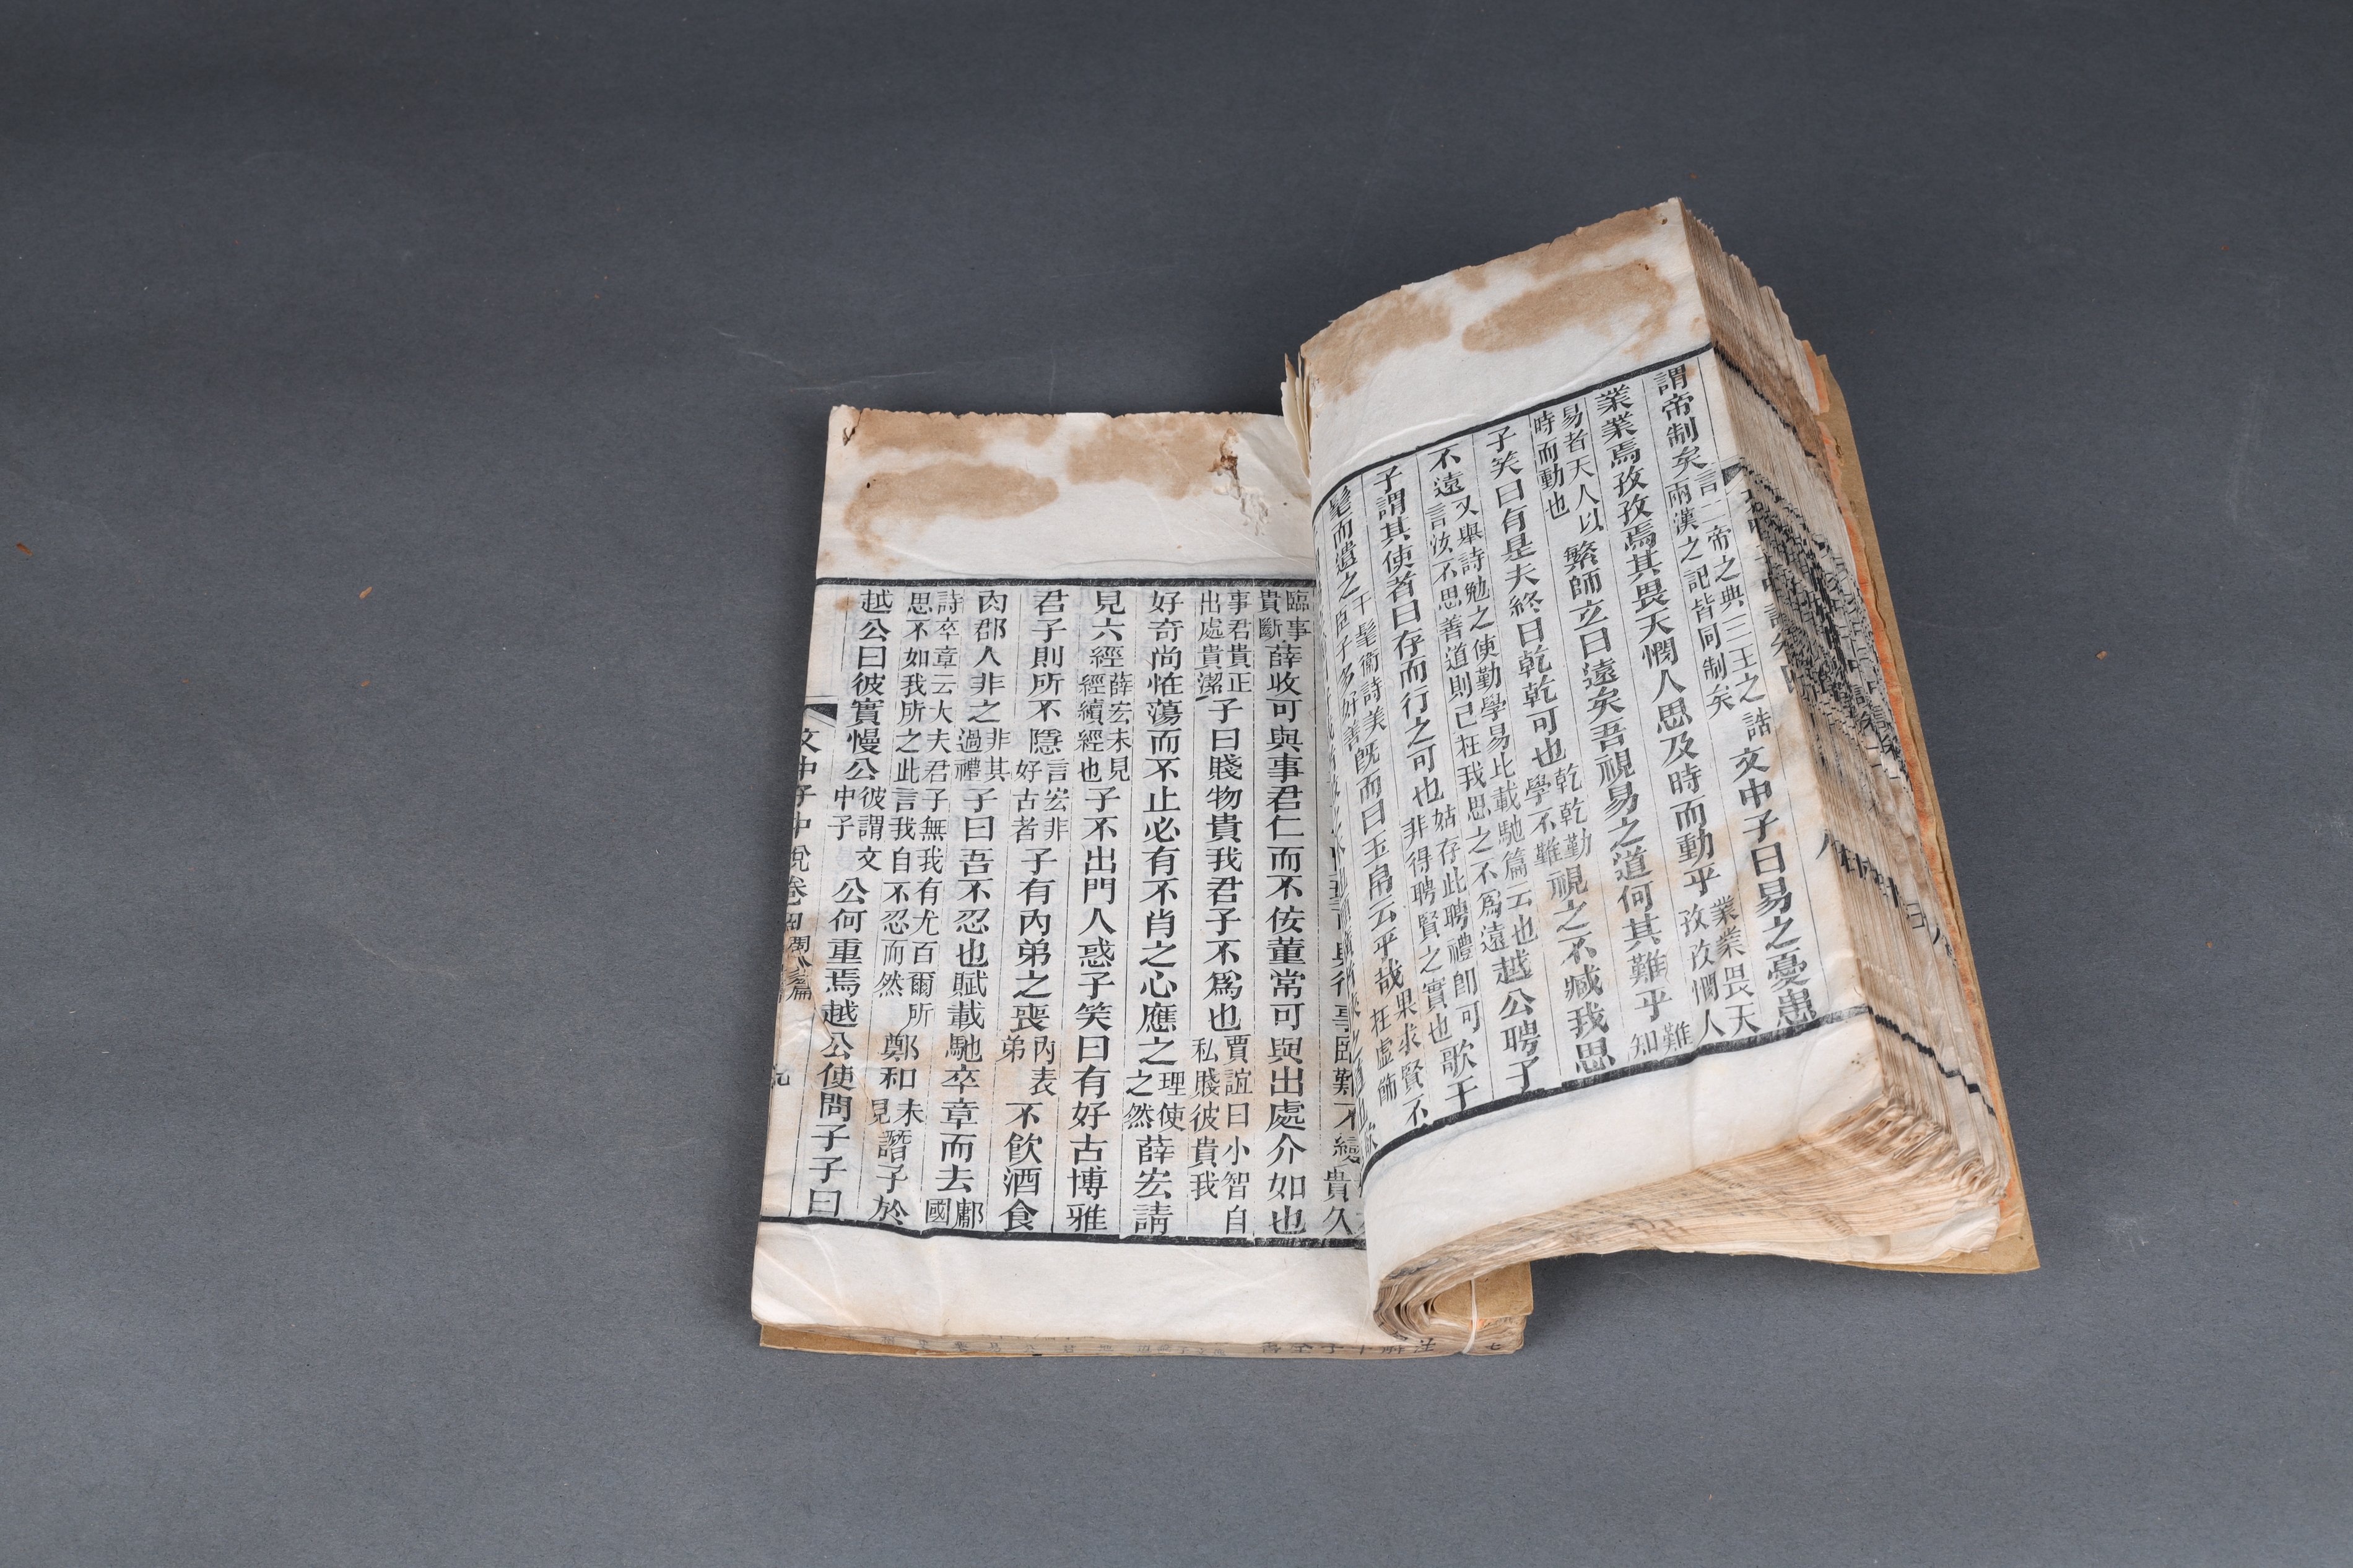 謂帝制矣言二帝之典三王之誥兩漢之記皆同制矣文中子曰易之憂患
業業焉孜孜焉其畏天憫人思及時而動乎業業畏天孜孜憫人
易者天人以時而動也繁師立曰遠矣吾視易之道何其難乎難知
子笑曰有是夫終日乾乾可也乾乾勤學不難視之不臧我思
不遠又舉詩勉之使勤學易比載馳篇云也言汝不思善道則已在我思之不爲遠越公聘子
子謂其使者曰存而行之可也姑存此聘禮卽可非得聘賢之實也歌干
髦而遣之干髦衛詩美臣子多好善旣而曰玉帛云乎哉果求賢不在虛飾
臨事貴斷薛收可與事君仁而不佞董常可與出處介如也
事君貴正出處貴潔子曰賤物貴我君子不爲也賈誼曰小智自私賤彼貴我
好奇尚怪蕩而不止必有不肖之心應之理使之然薛宏請
見六經薛宏未見經續經也子不出門人惑子笑曰有好古博雅
君子則所不隱言宏非好古者子有內弟之喪內表弟不飮酒食
肉郡人非之非其過禮子曰吾不忍也賦載馳卒章而去鄘國
詩卒章云大夫君子無我有尤百爾所思不如我所之此言我自不忍而然鄭和未見譖子於
越公曰彼實慢公彼謂文中子公何重焉越公使問子子曰
文中子中說卷四 周公篇